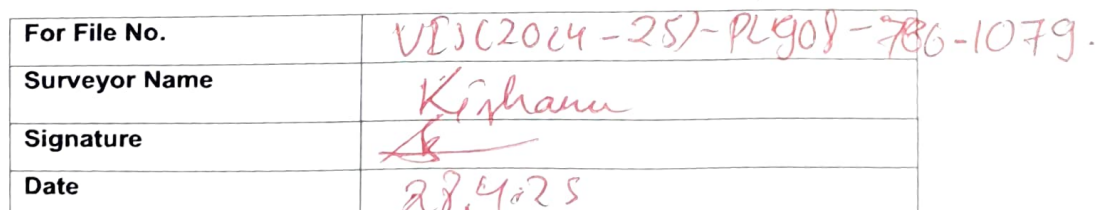 For File No. VIS(2024-25)-PL908-786-1079.
Surveyor Name Kishanu
Signature
Date 28.4.25